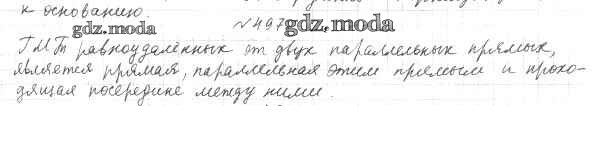 к основанию.
gdz.moda
№497
gdz.moda
ГМТ равноудалённых от двух параллельных прямых,
является прямая, параллельная этим прямым и прохо-
дящая посередине между ними.